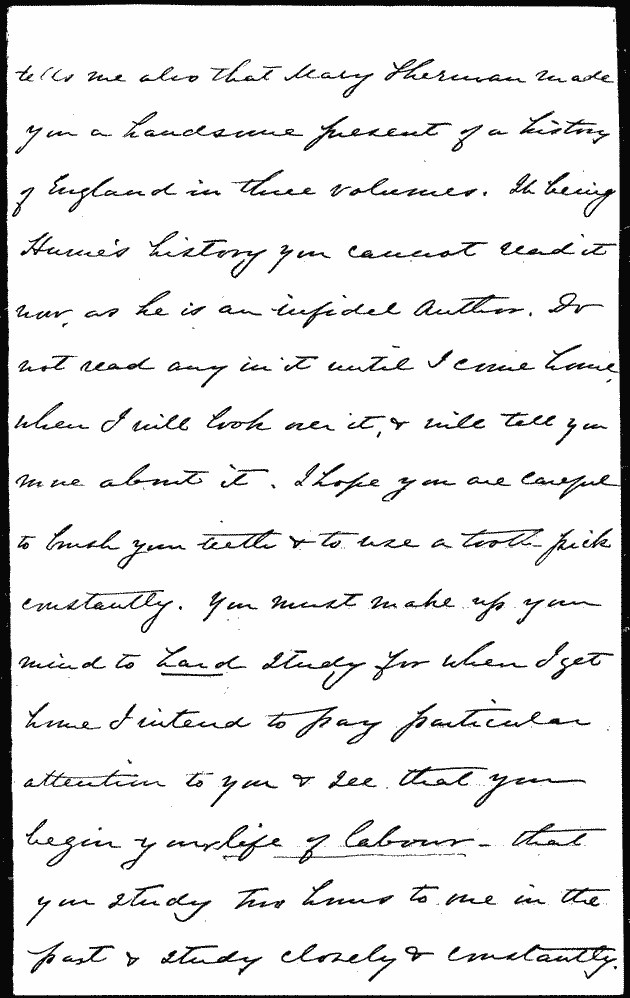 tells me also that Mary Sherman made
you a handsome present of a history
of England in three volumes. It being
Hume's history you cannot read it
now, as he is an infidel author. Do
not read any in it until I come home,
when I will look over it, & will tell you
more about it. I hope you are careful
to brush your teeth & to use a tooth-pick
constantly. You must make up your
mind to hard study for when I get
home I intend to pay particular
attention to you & see that you
begin your life of labour - that
you study two hours to one in the
past & study closely & constantly.